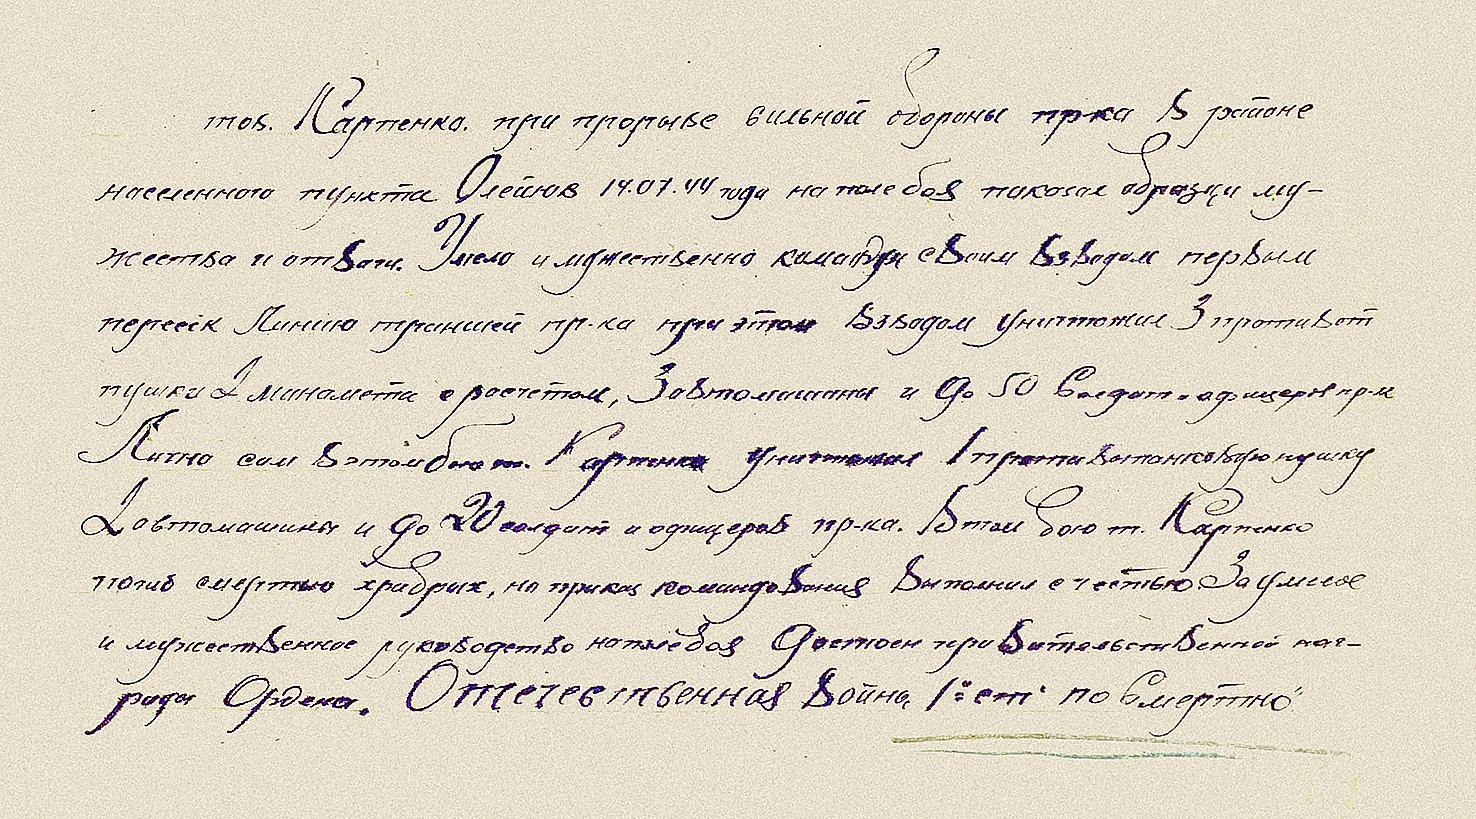 тов. Карпенко. при прорыве сильной обороны пр-ка в районе
населенного пункта Олеюв 14.07.44 года на поле боя показал образци му-
жества и отваги. Умело и мужественно командуя своим взводом первым
пересек Линию траншей пр-ка при этом взводом уничтожил 3 противот
пушки 2 минамета с расчетом, 3 автомашины и до 50 Солдат и офицеров пр-к
Лично сам в этом бою т. Карпенко уничтожил 1 противытанковую пушку
2 автомашины и до 20 солдат и офицеров пр-ка. В том бою т. Карпенко
погиб смертью храбрых, но приказ командования выполнил с честью. За умное
и мужественное руководство на поле боя достоен правительственной наг-
рады Ордена. Отечественная Война 1ой ст. по Смертно"